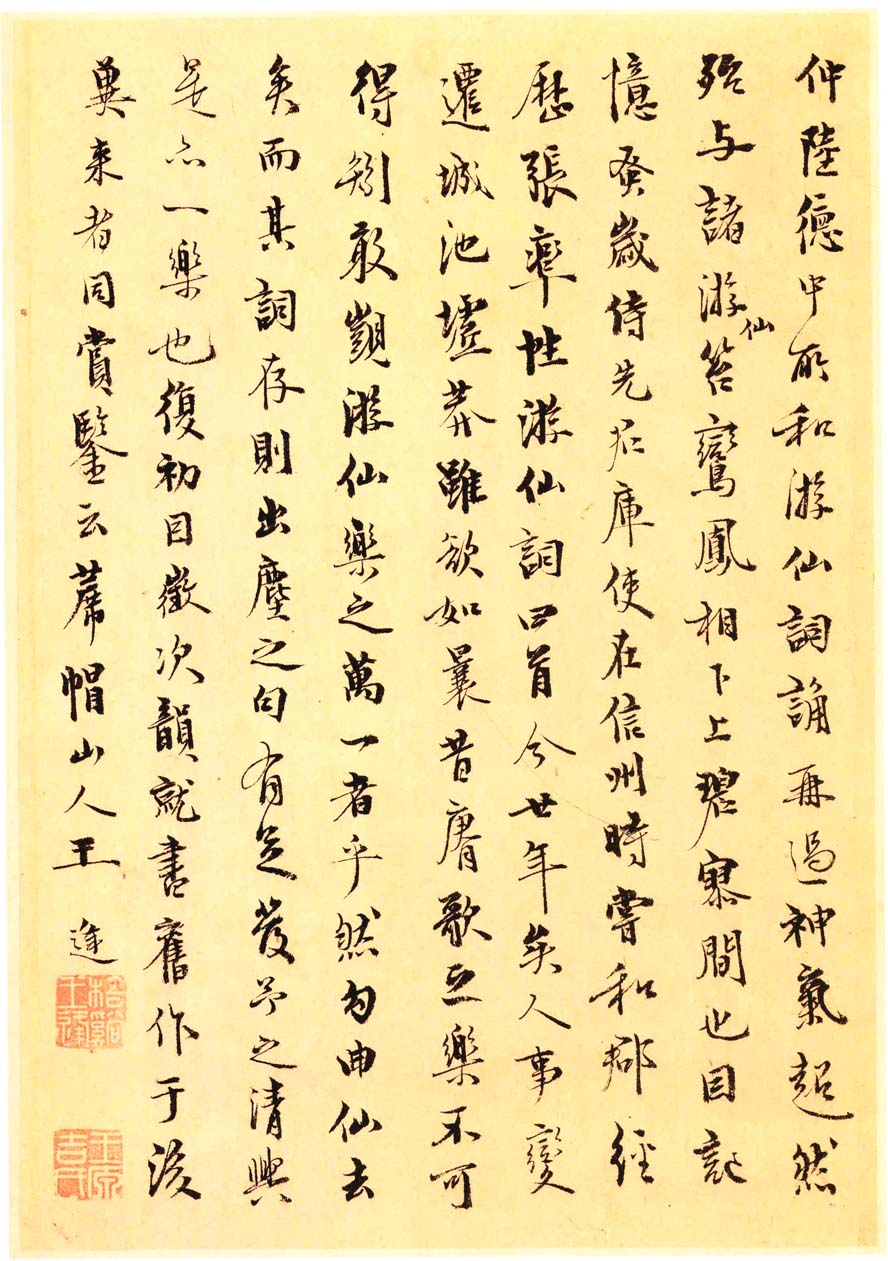 仲陸德中所和游仙詞誦再過神氣超然
殆与諸游仙笞鸞鳳相下上碧寥間也因記
憶蚤歲侍先君庫使在信州時嘗和郡經
歷張率性游仙詞四首今廿年矣人事變
遷城池墟莽雖欲如曩昔賡歌之樂不可
得矧敢覬游仙樂之萬一者乎然勾曲仙去
矣而其詞存則出塵之句有足發予之清興
是亦一樂也復初因徵次韻就書舊作于後
冀來者同賞鑒云蓆帽山人王逢